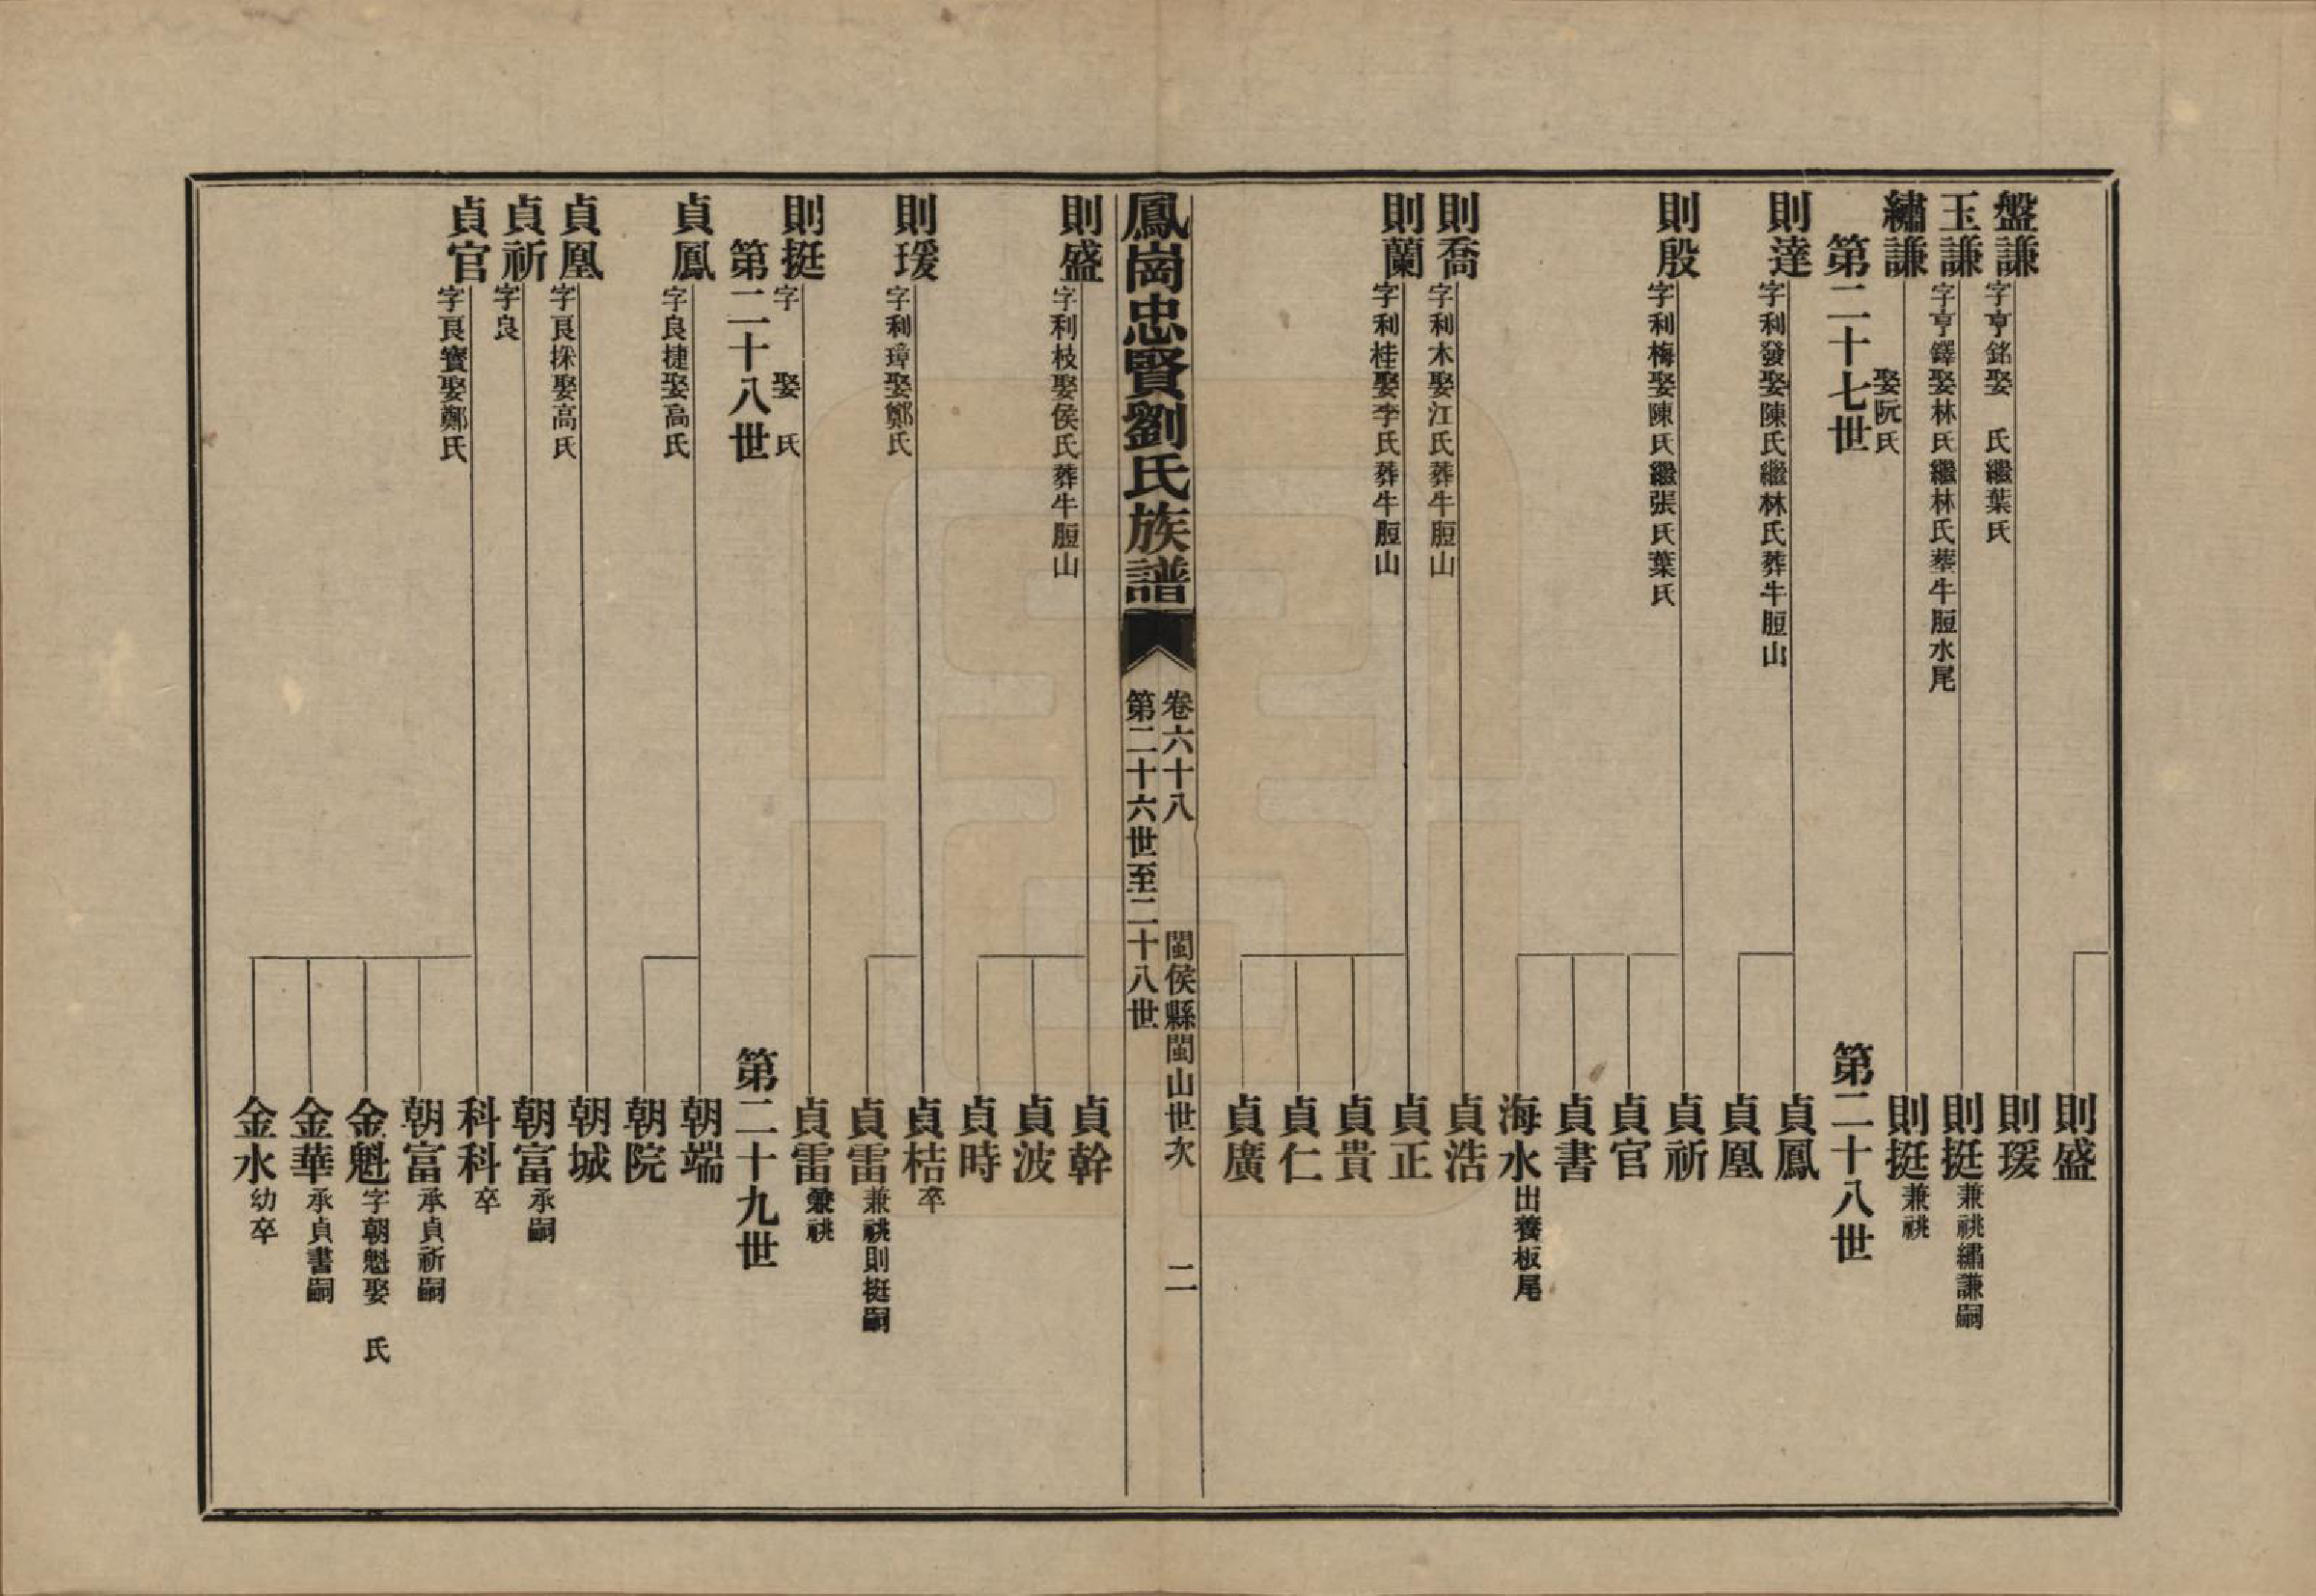 則盛
盤謙字亨銘娶　氏繼葉氏
則瑗
玉謙字亨鐸娶林氏繼林氏葬牛脰水尾
則挺兼祧繡謙嗣
繡謙　娶阮氏
則挺兼祧
第二十七世
第二十八世
則達字利發娶陳氏繼林氏葬牛脰山
貞鳳
貞凰
則殷字利梅娶陳氏繼張氏葉氏
貞祈
貞官
貞書
海水出養板尾
則喬字利木娶江氏葬牛脰山
貞浩
則蘭字利桂娶李氏葬牛脰山
貞正
貞貴
貞仁
貞廣
鳳崗忠賢劉氏族譜
卷六十八　閩侯縣閩山世次　二
第二十六世至二十八世
則盛字利枝娶侯氏葬牛脰山
貞幹
貞波
貞時
則瑗字利璋娶鄭氏
貞桔卒
貞雷兼祧則挺嗣
則挺字　娶　氏
貞雷兼祧
第二十八世
第二十九世
貞鳳字良捷娶高氏
朝端
朝院
貞凰字良採娶高氏
朝城
貞祈字良
朝富承嗣
貞官字良寶娶鄭氏
科科卒
朝富承貞祈嗣
金魁字朝魁娶　氏
金華承貞書嗣
金水幼卒